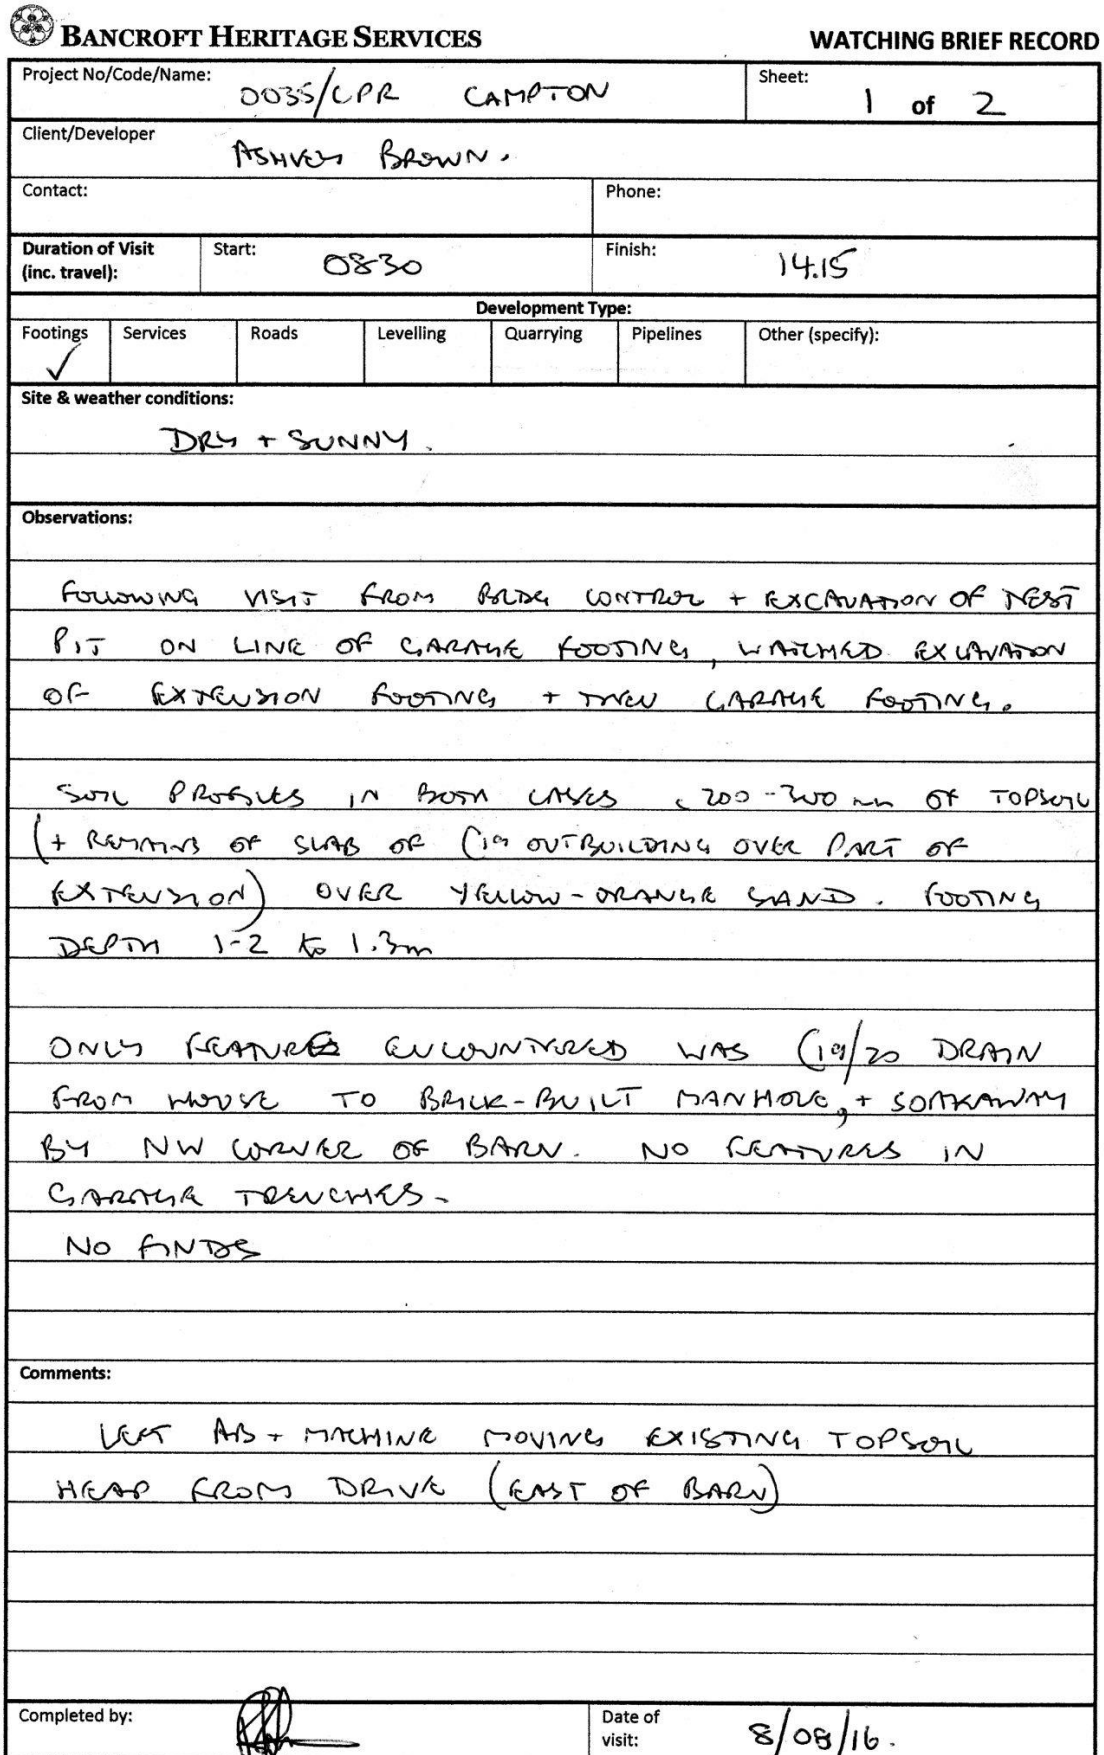 BANCROFT HERITAGE SERVICES
WATCHING BRIEF RECORD
Project No/Code/Name: 0035/CPR CAMPTON
Sheet: 1 of 2
Client/Developer ASHLEY BROWN.
Contact:
Phone:
Duration of Visit (inc. travel):
Start: 0830
Finish: 14.15
Development Type:
Footings ✓ Services Roads Levelling Quarrying Pipelines Other (specify):
Site & weather conditions:
DRY + SUNNY.
Observations:
FOLLOWING VISIT FROM BLDG CONTROL + EXCAVATION OF TEST
PIT ON LINE OF GARAGE FOOTING, WATCHED EXCAVATION
OF EXTENSION FOOTING + THEN GARAGE FOOTING.
SOIL PROFILES IN BOTH CASES c 200-300 mm OF TOPSOIL
(+ REMAINS OF SLAB OF C19 OUTBUILDING OVER PART OF
EXTENSION) OVER YELLOW-ORANGE SAND. FOOTING
DEPTH 1-2 to 1.3m
ONLY FEATURE ENCOUNTERED WAS C19/20 DRAIN
FROM HOUSE TO BRICK-BUILT MANHOLE, + SOAKAWAY
BY NW CORNER OF BARN. NO FEATURES IN
GARAGE TRENCHES-
NO FINDS
Comments:
LEFT AB + MACHINE MOVING EXISTING TOPSOIL
HEAP FROM DRIVE (EAST OF BARN)
Completed by:
Date of visit: 8/08/16.